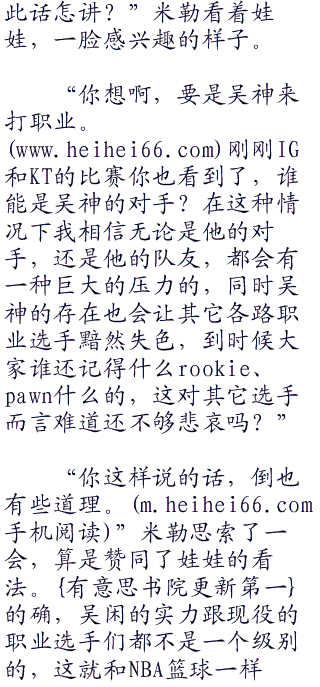 此话怎讲？”米勒看着娃
娃，一脸感兴趣的样子。
“你想啊，要是吴神来
打职业。
(www.heihei66.com)刚刚IG
和KT的比赛你也看到了，谁
能是吴神的对手？在这种情
况下我相信无论是他的对
手，还是他的队友，都会有
一种巨大的压力的，同时吴
神的存在也会让其它各路职
业选手黯然失色，到时候大
家谁还记得什么rookie、
pawn什么的，这对其它选手
而言难道还不够悲哀吗？”
“你这样说的话，倒也
有些道理。(m.heihei66.com
手机阅读)”米勒思索了一
会，算是赞同了娃娃的看
法。{有意思书院更新第一}
的确，吴闲的实力跟现役的
职业选手们都不是一个级别
的，这就和NBA篮球一样